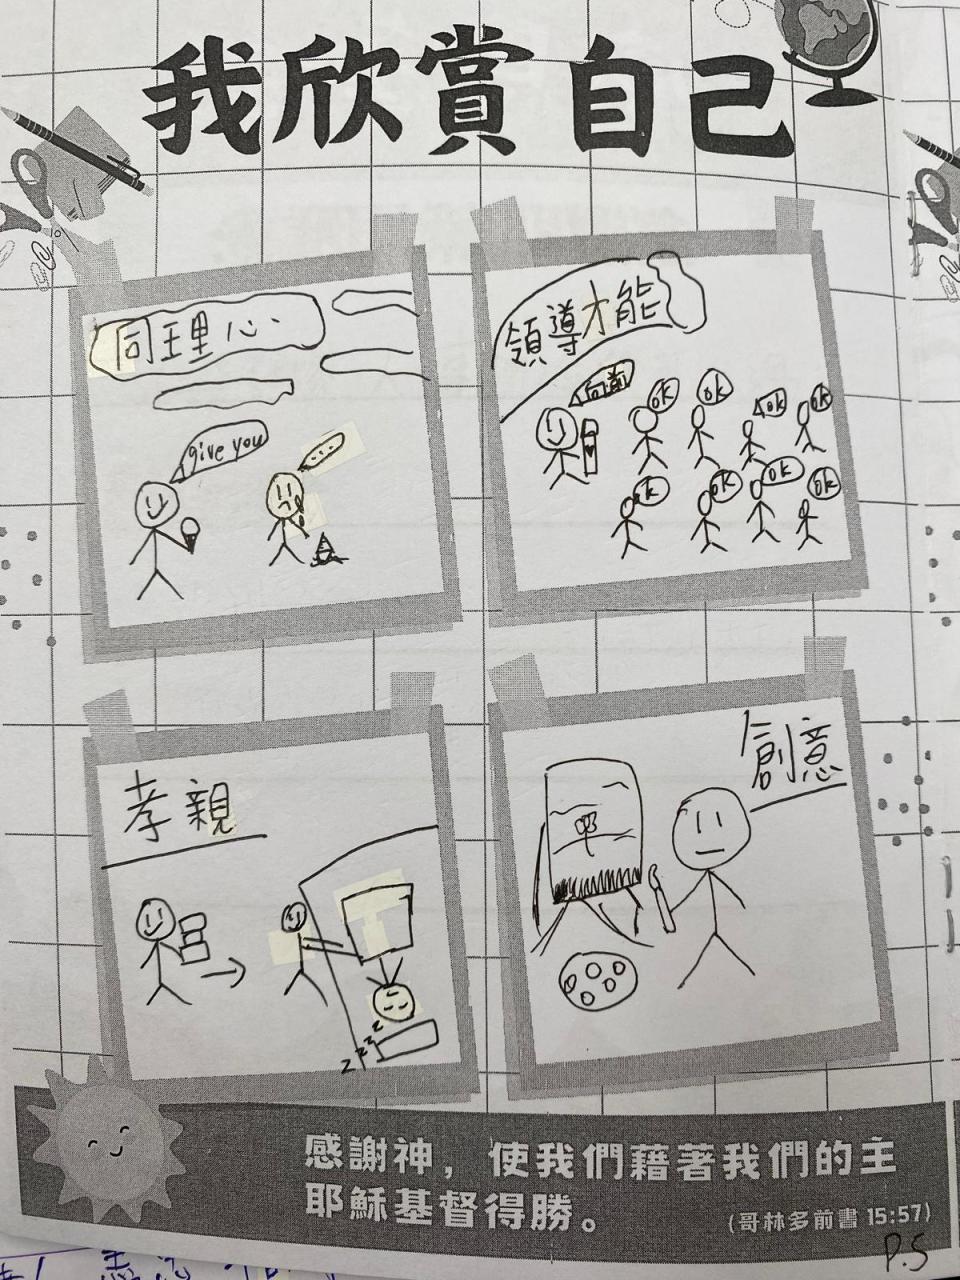 我欣賞自己
同理心
give you
...
領導才能
向前
ok
ok
ok
ok
ok
ok
ok
ok
孝親
zzzz
創意
感謝神，使我們藉著我們的主
耶穌基督得勝。
(哥林多前書 15:57)
P.5